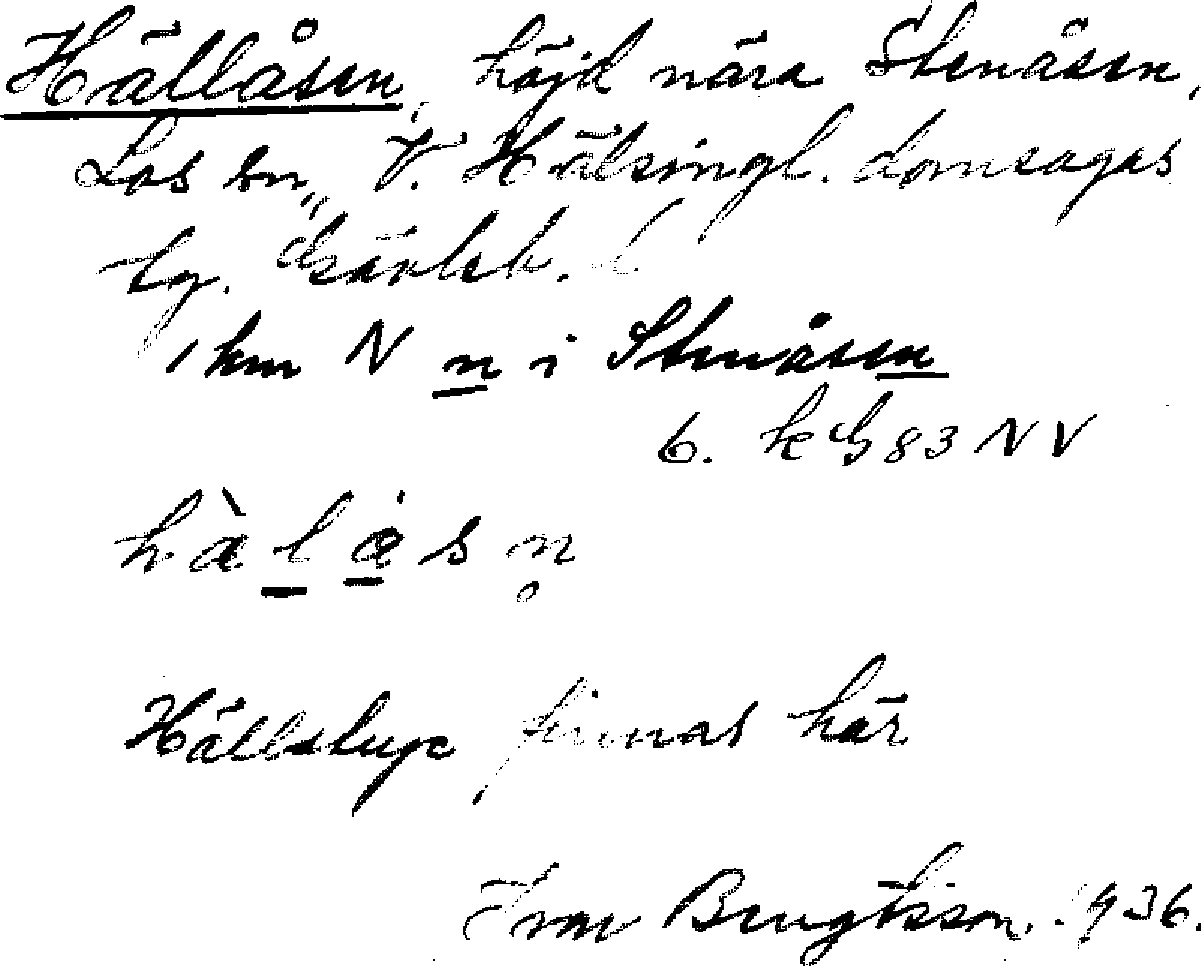 Hällåsen, höjd nära Stenåsen,
Los sn, V. Hälsingl. domsagas
tg. Gävleb. l.
1 km N n i Stenåsen
6. k G 83 NV
hàlås n̥
Hällstup finnas här
Ivar Bengtsson. 1936.